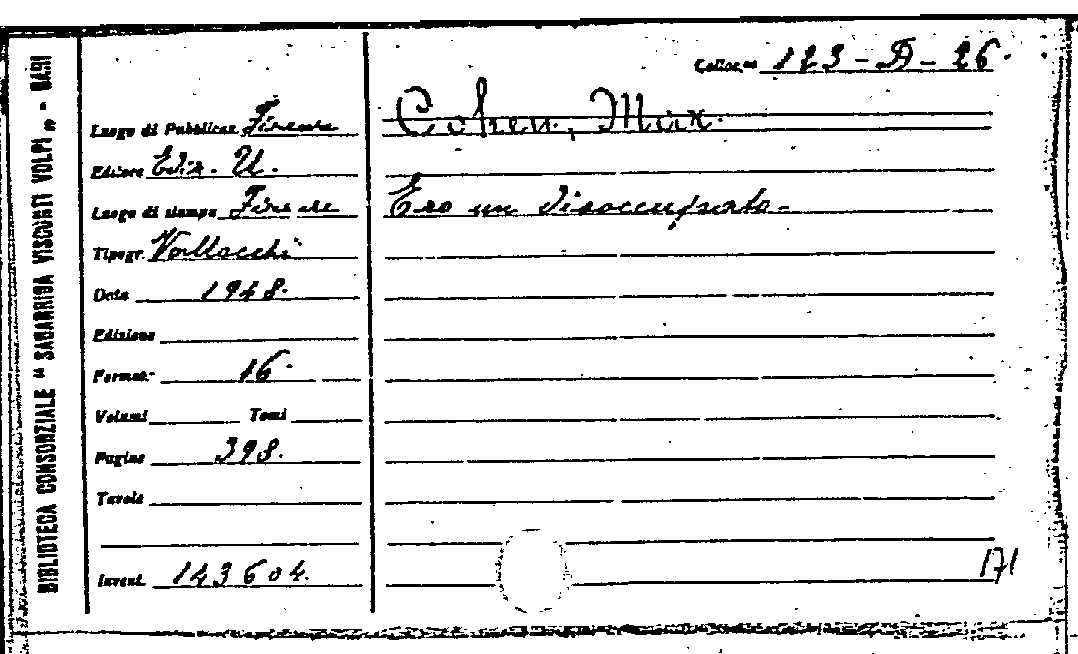 BIBLIOTECA CONSORZIALE "SAGARRIGA VISCONTI VOLPI" - BARI
Colloc.ne 123 - D - 26.
Luogo di Pubblicaz. Firenze
Cohen, Max.
Editore Ediz. U.
Luogo di stampa Firenze
Ero un disoccupato -
Tipogr. Vallecchi
Data 1948.
Edizione
Format. 16.
Volumi Tomi
Pagine 398.
Tavole
Invent. 143604.
171